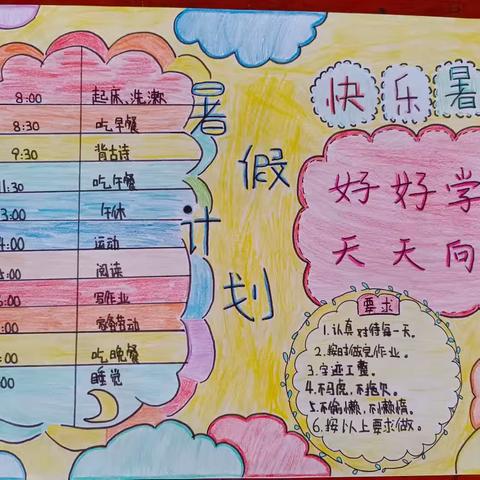 8:00 起床、洗漱
8:30 吃早餐
9:30 背古诗
11:30 吃午餐
3:00 午休
4:00 运动
5:00 阅读
6:00 写作业
:00 家务劳动
:00 吃晚餐
:00 睡觉
暑假计划
快乐暑
好好学
天天向
要求
1.认真对待每一天。
2.按时做完作业。
3.字迹工整。
4.不马虎,不拖欠。
5.不偷懒,不懒惰。
6.按以上要求做。